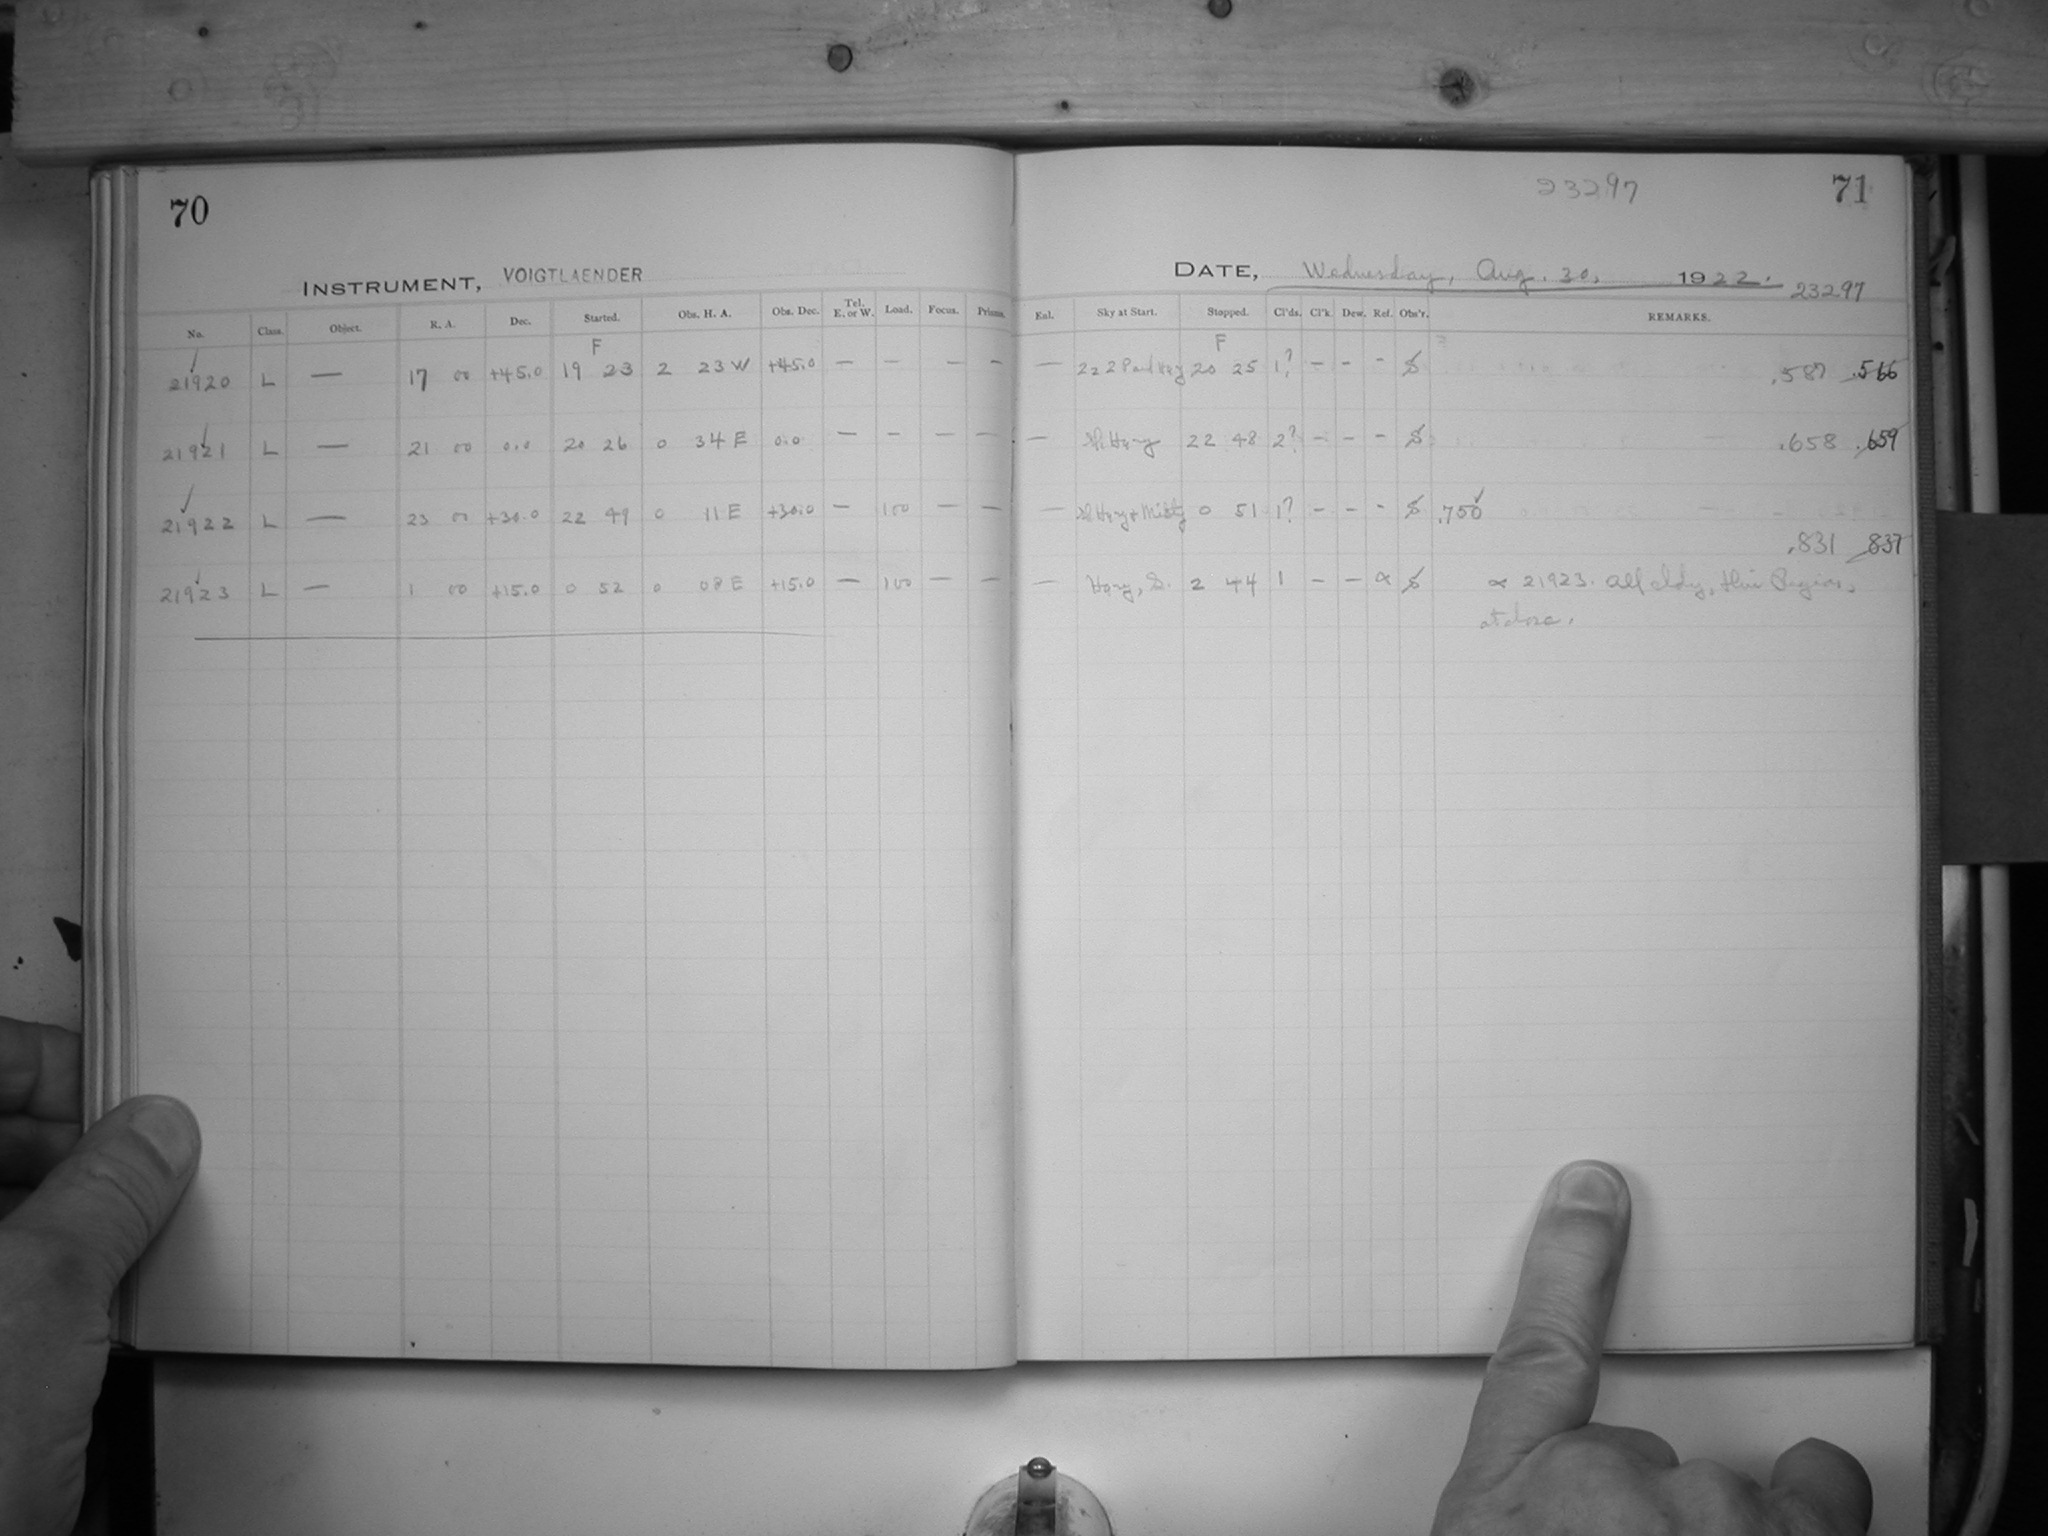 70
INSTRUMENT, VOIGTLAENDER
No. Class. Object. R. A. Dec. Started. Obs. H. A. Obs. Dec. Tel. E. or W. Load. Focus. Prisms.
F
21920 L — 17 00 +45.0 19 23 2 23 W +45.0 — — — —
21921 L — 21 00 0.0 20 26 0 34 E 0.0 — — — —
21922 L — 23 00 +30.0 22 49 0 11 E +30.0 — 100 — —
21923 L — 1 00 +15.0 0 52 0 08 E +15.0 — 100 — —
23297 71
DATE, Wednesday, Aug. 30, 1922.
23297
Enl. Sky at Start. Stopped. Cl'ds. Cl'k. Dew. Ref. Obs'r. REMARKS.
F
— 20 25 1? — — — S .587 .566
— Sl. Hazy 22 48 2? — — — S .658 .659
— Sl. Hazy & Misty 0 51 1? — — — S .750
.831 .837
— Hazy, S. 2 44 1 — — α S α 21923. All cldy,
at close.